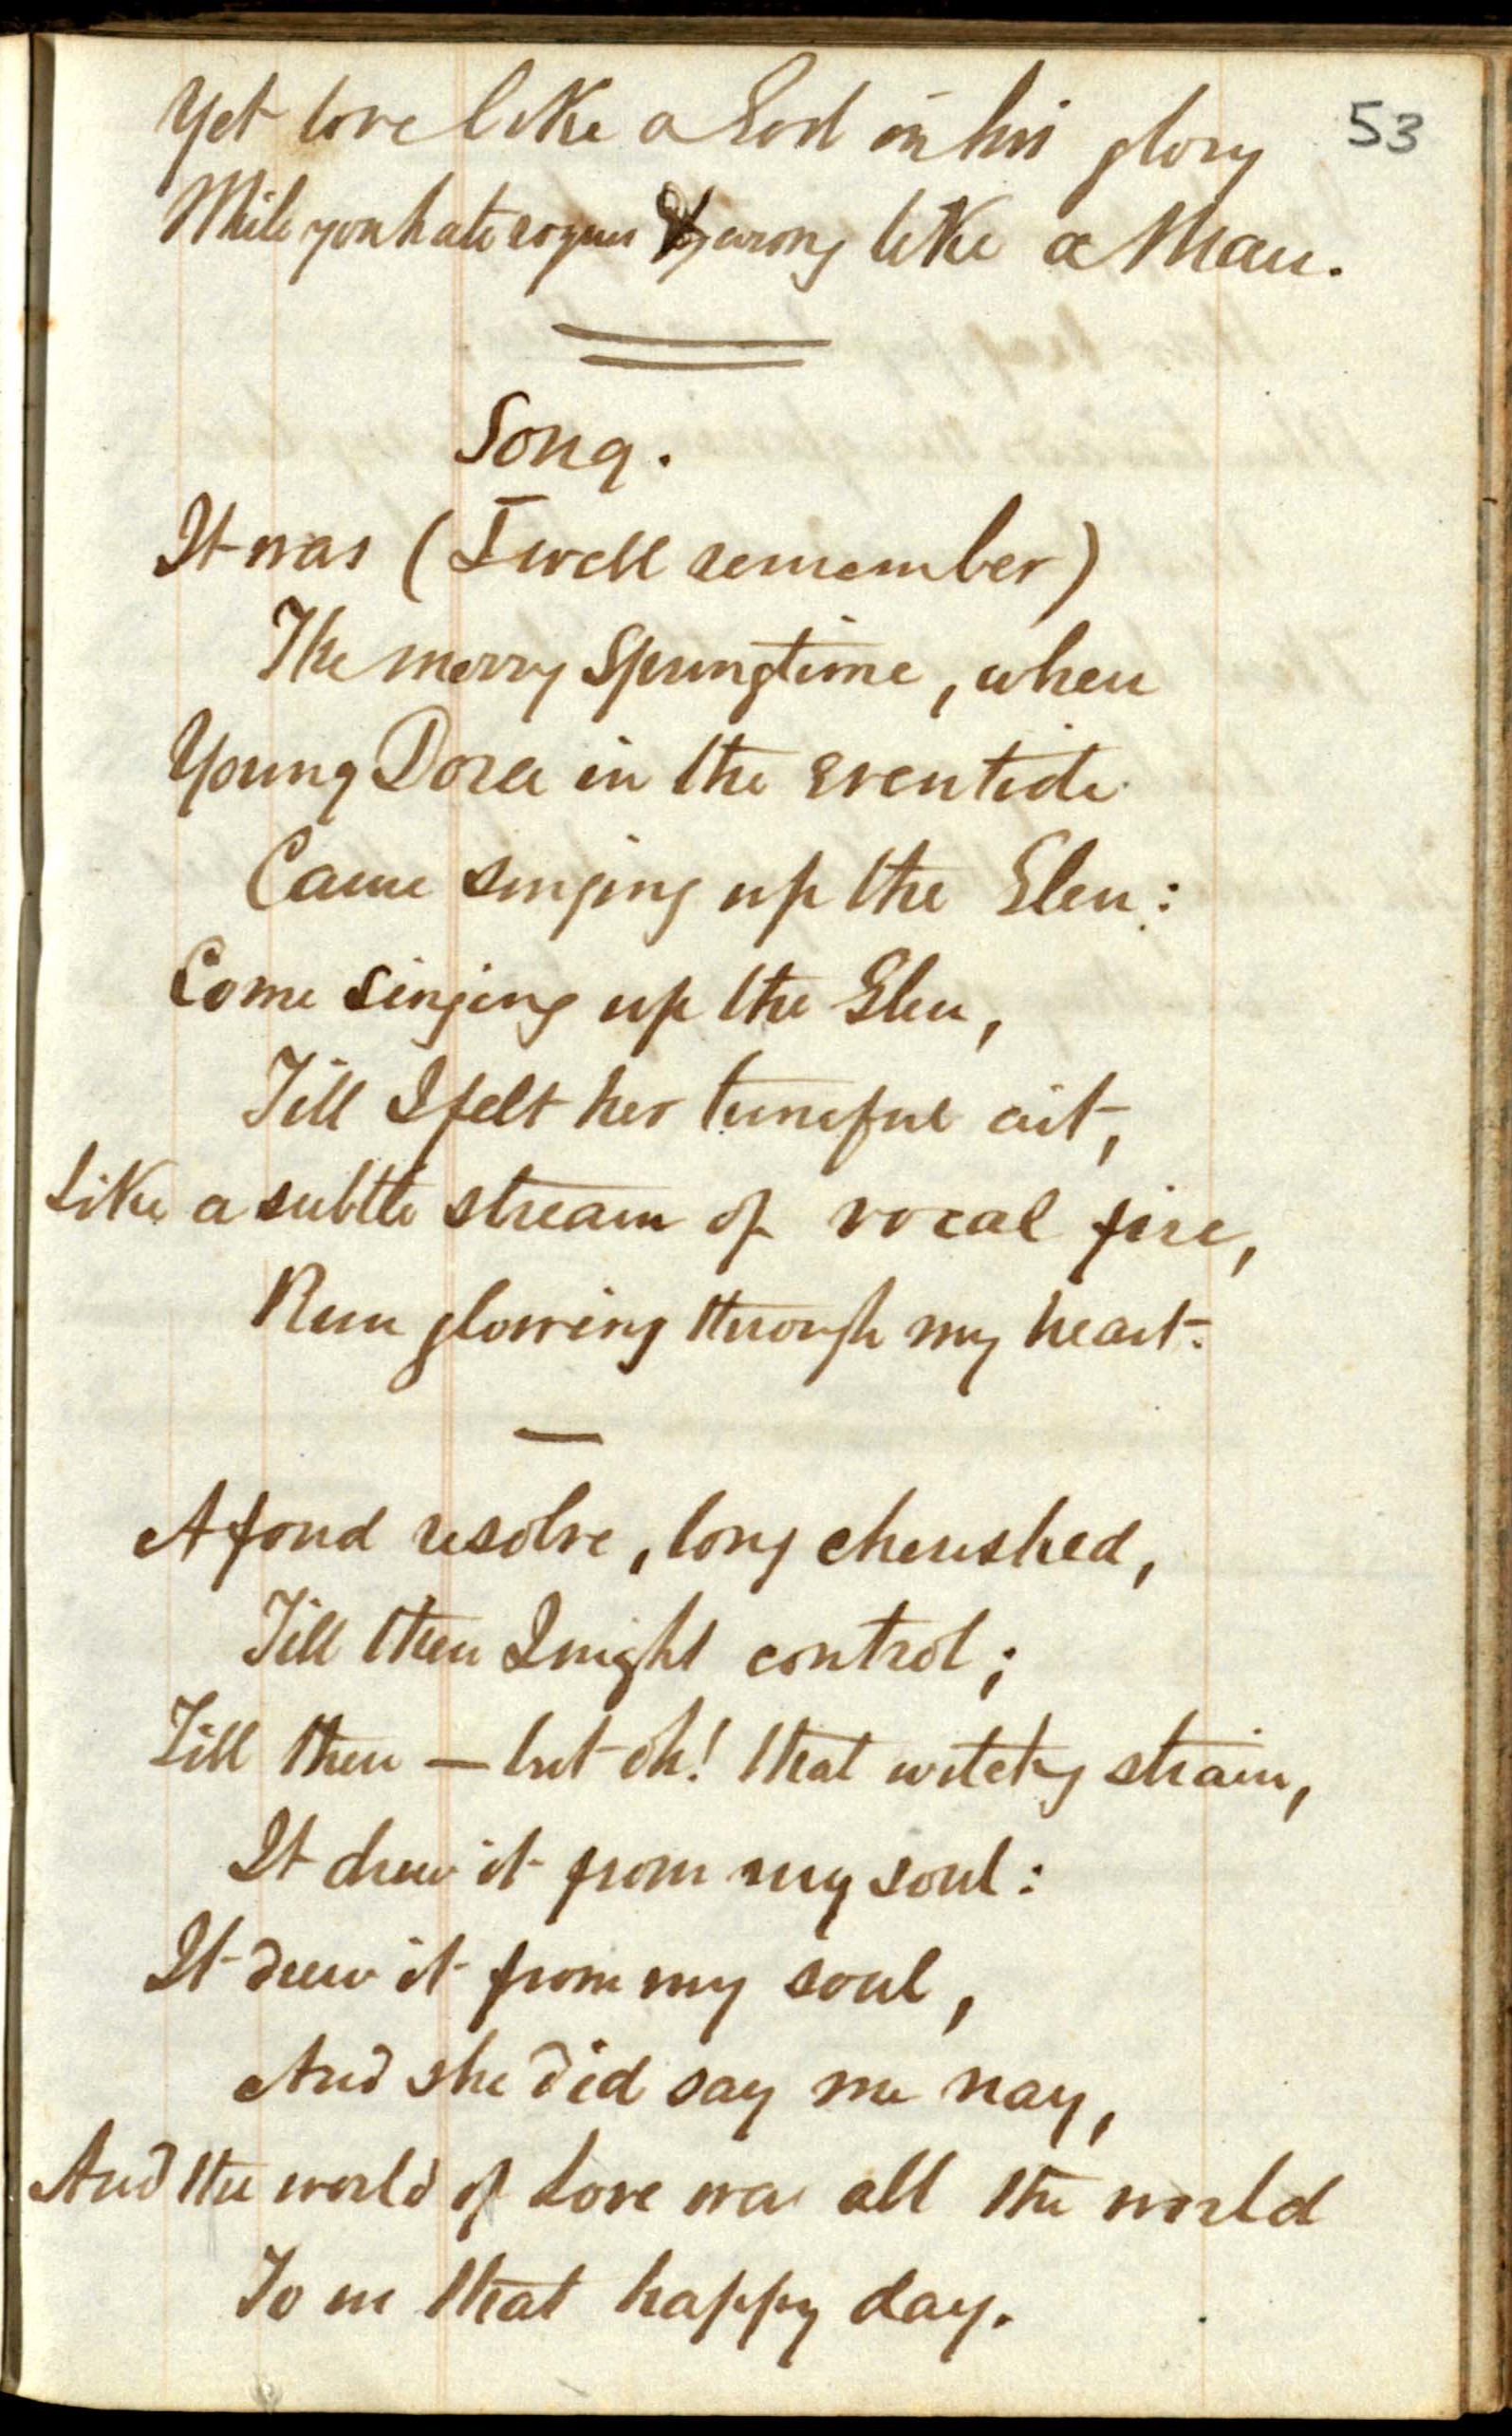 53
Yet love like a God in his glory
While you hate rogues & wrong like a Man.
Song.
It was (I well remember)
The merry Springtime, when
Young Dora in the eventide
Came singing up the Glen:
Come singing up the Glen,
Till I felt her tuneful art,
Like a subtle stream of vocal fire,
Run glowing through my heart.
A fond resolve, long cherished,
Till then I might control;
Till then — but oh! that witching strain,
It drew it from my soul:
It drew it from my soul,
And she did say me nay,
And the world of Love was all the world
To us that happy day.